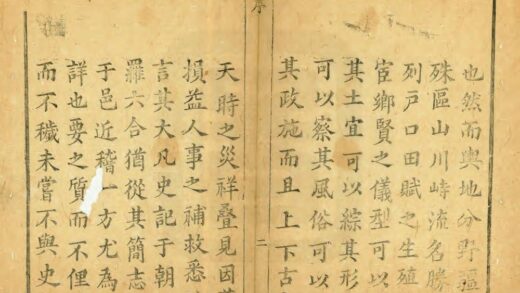 也然而輿地分野疆
殊區山川峙流名勝
列戶口田賦之生殖
宦鄉賢之儀型可以
其土宜可以綜其形
可以察其風俗可以
其政施而且上下古
序
二
天時之災祥疊見因
損益人事之補救悉
言其大凡史記于朝
羅六合猶從其簡志
于邑近稽一方尤為
詳也要之質而不俚
而不穢未嘗不與史